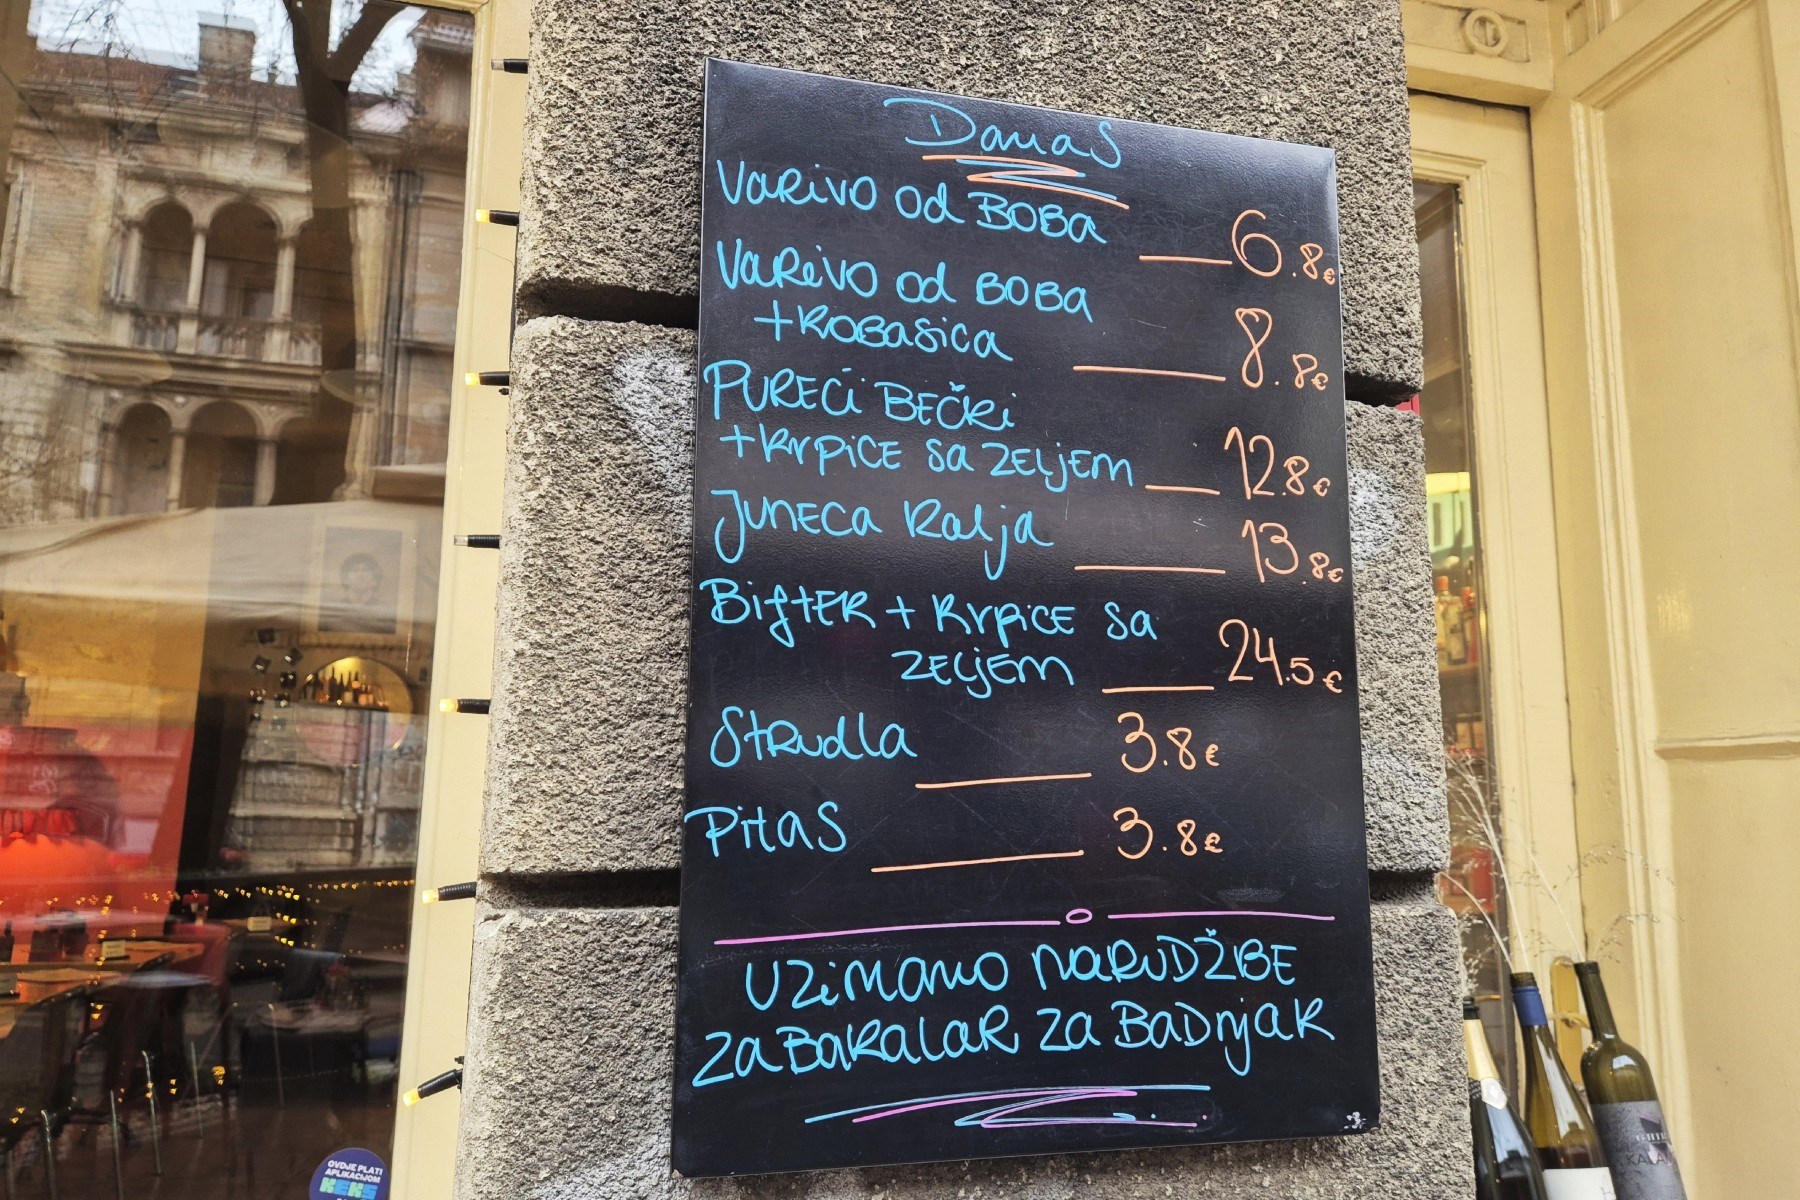 Danas
VARIVO od BOBA 6.8€
VARIVO od BOBA
+KOBASICA 8.8€
PUREĆI BEČKI
+KRPICE SA ZELJEM 12.8€
JUNEĆA Kalja 13.8€
BIFTEK + KRPICE SA
ZELJEM 24.5€
STRUDLA 3.8€
PITAS 3.8€
UZIMAMO NARUDŽBE
ZA BAKALAR ZA BADNJAK
OVDJE PLATI
APLIKACIJOM
KEKS